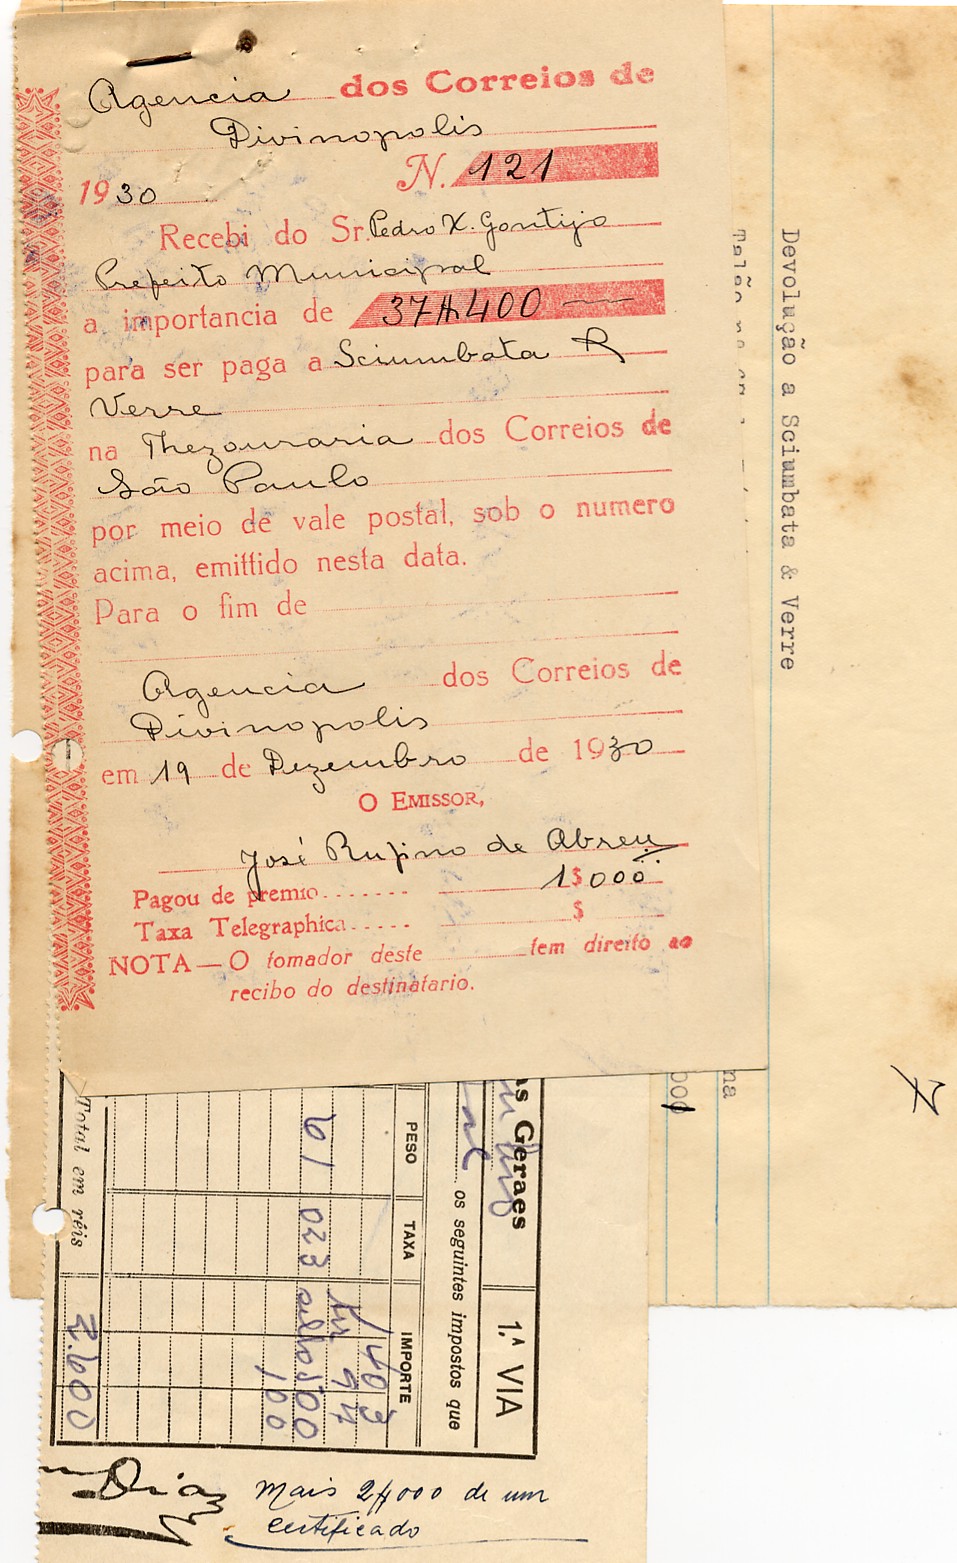 Agencia dos Correios de
Divinopolis
1930 N. 121
Recebi do Sr. Pedro X. Gontijo
Prefeito Municipal
a importancia de 37$400
para ser paga a Sciumbata &
Verre
na Thezouraria dos Correios de
São Paulo
por meio de vale postal, sob o numero
acima, emittido nesta data.
Para o fim de
Agencia dos Correios de
Divinopolis
em 19 de Dezembro de 1930
O EMISSOR,
José Rufino de Abreu
Pagou de premio....... 1$000
Taxa Telegraphica..... $
NOTA — O tomador deste tem direito ao
recibo do destinatario.
Devolução a Sciumbata & Verre
Talão
na
000
7
as Geraes 1.ª VIA
os seguintes impostos que
PESO TAXA IMPORTE
403
94
61 023 sello 500
100
Total em réis 2.600
Dia
Mais 2$000 de um
certificado